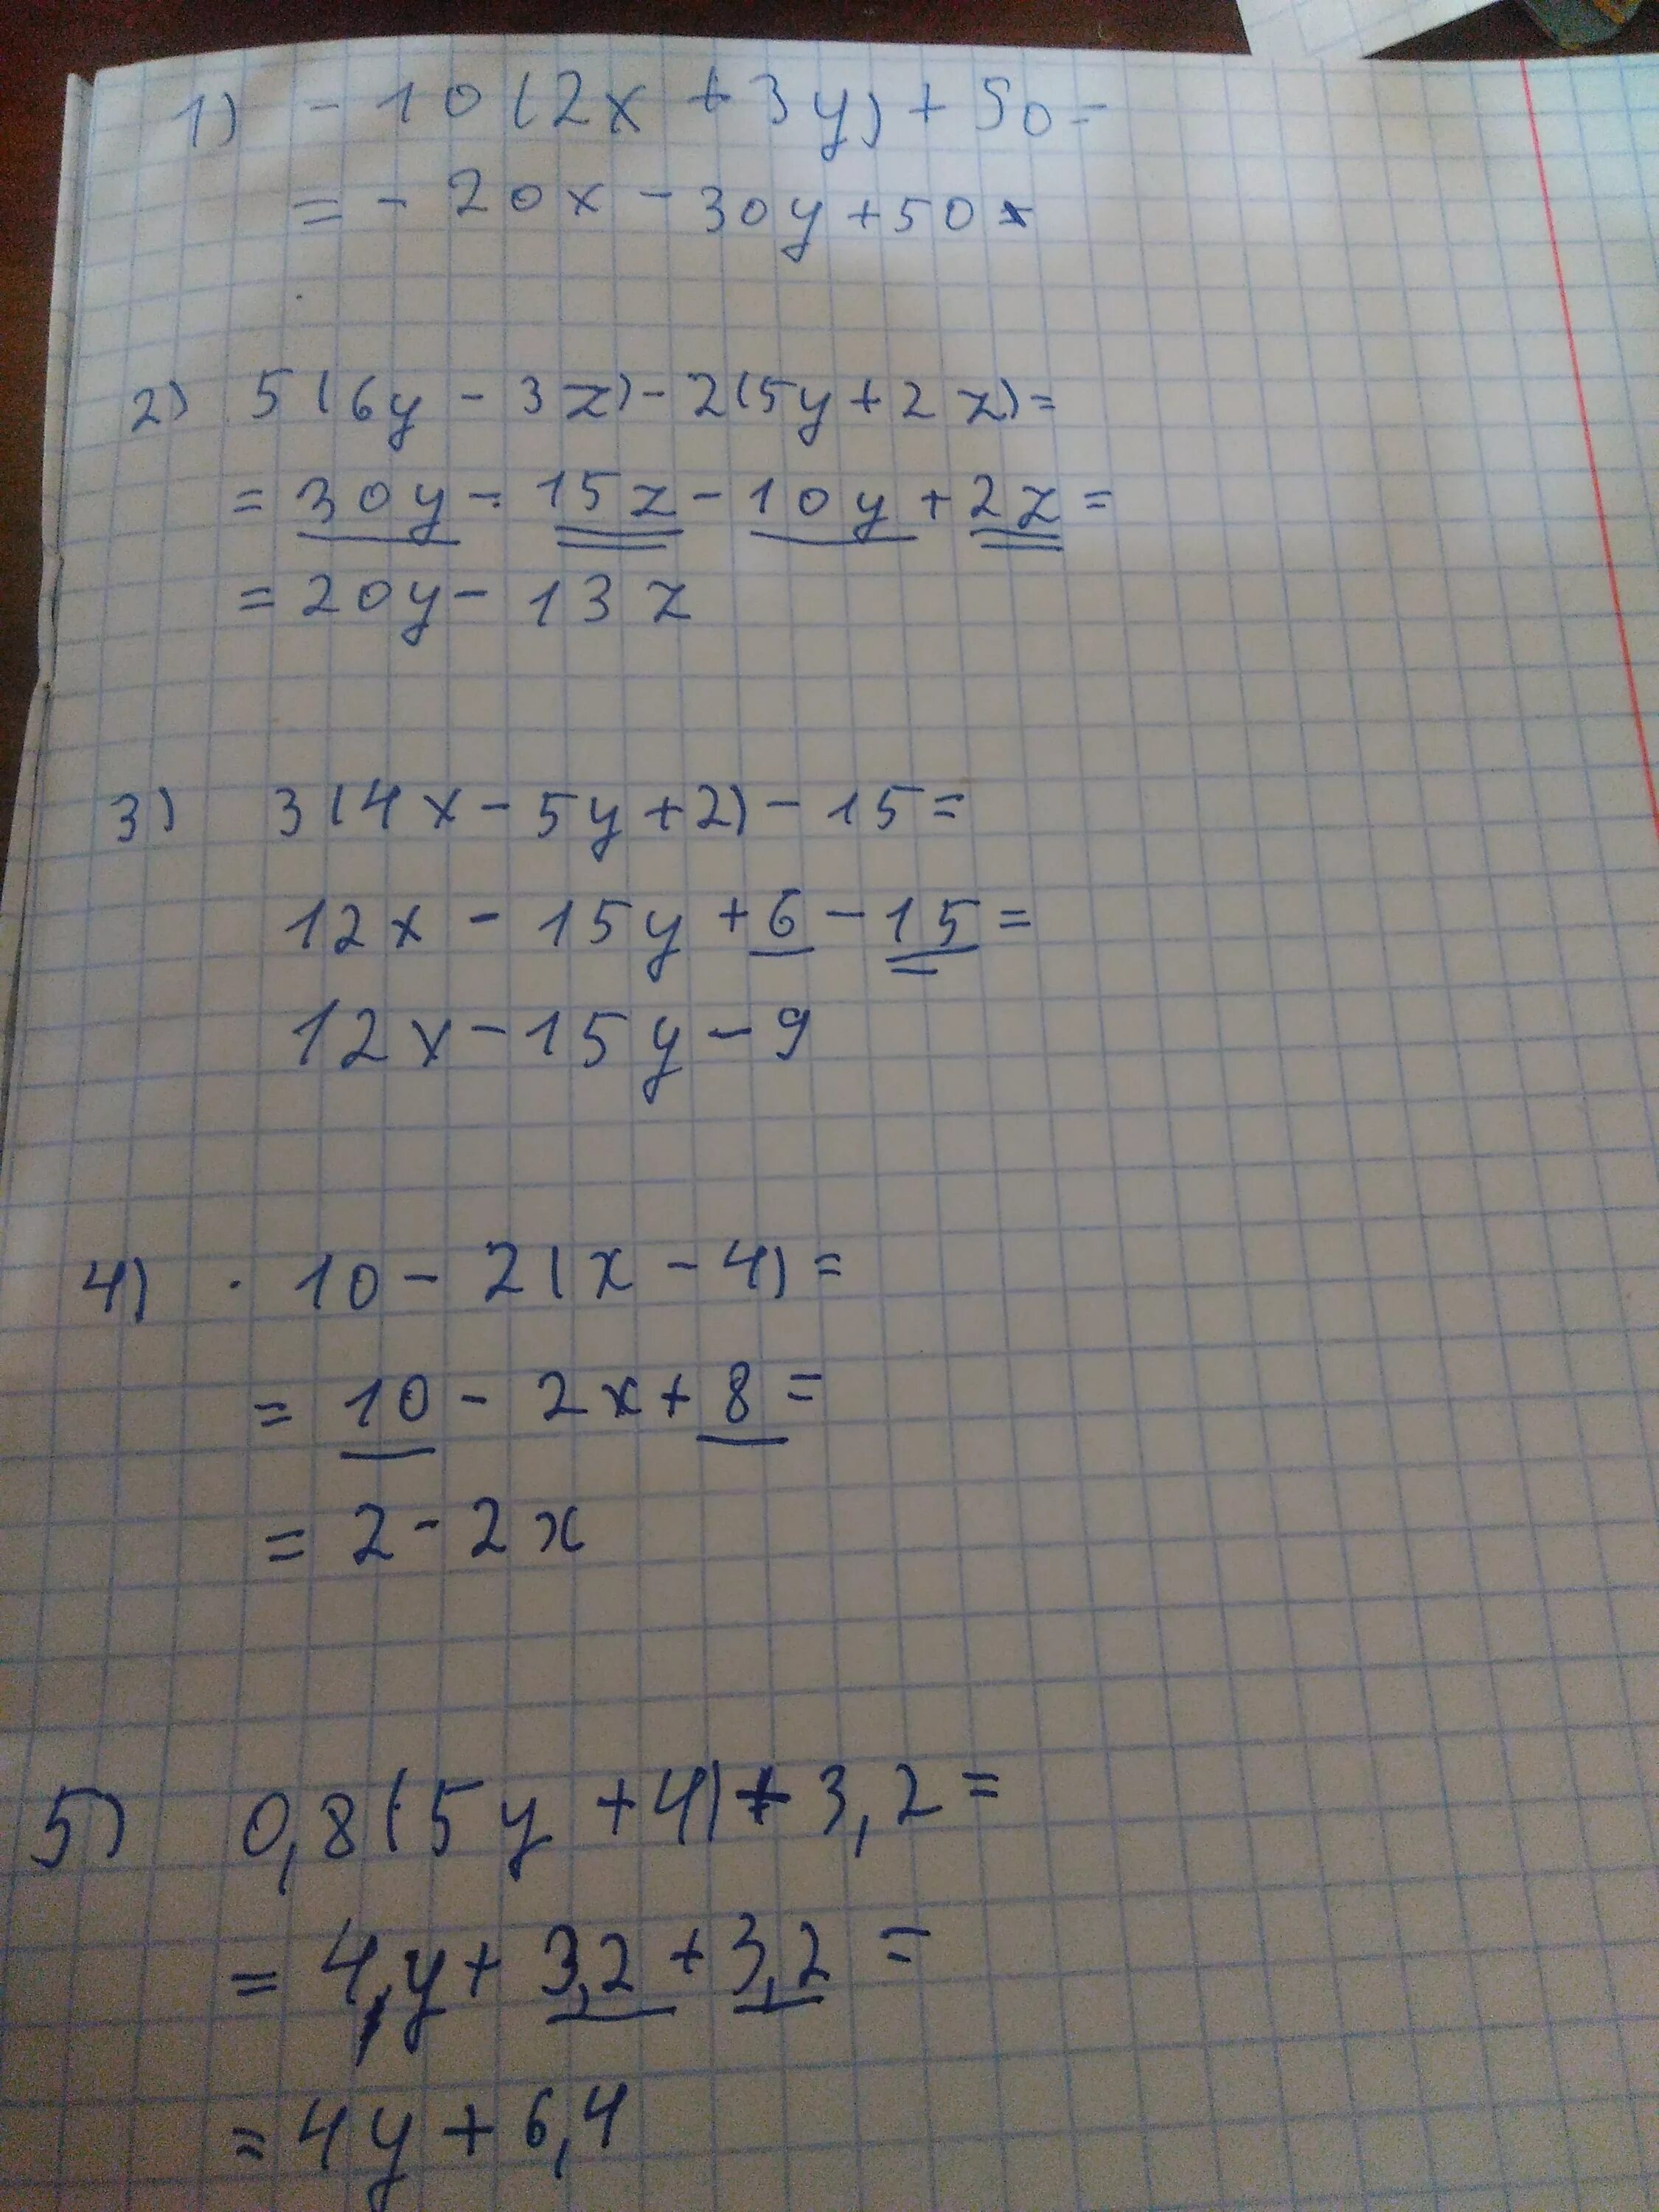 1) - 10 (2x + 3y) + 50 =
= - 20x - 30y + 50
2) 5 (6y - 3z) - 2(5y + 2z) =
= 30y - 15z - 10y + 2z =
= 20y - 13z
3) 3 (4x - 5y + 2) - 15 =
12x - 15y + 6 - 15 =
12x - 15y - 9
4) 10 - 2(x - 4) =
= 10 - 2x + 8 =
= 2 - 2x
5) 0,8 (5y + 4) + 3,2 =
= 4y + 3,2 + 3,2 =
= 4y + 6,4